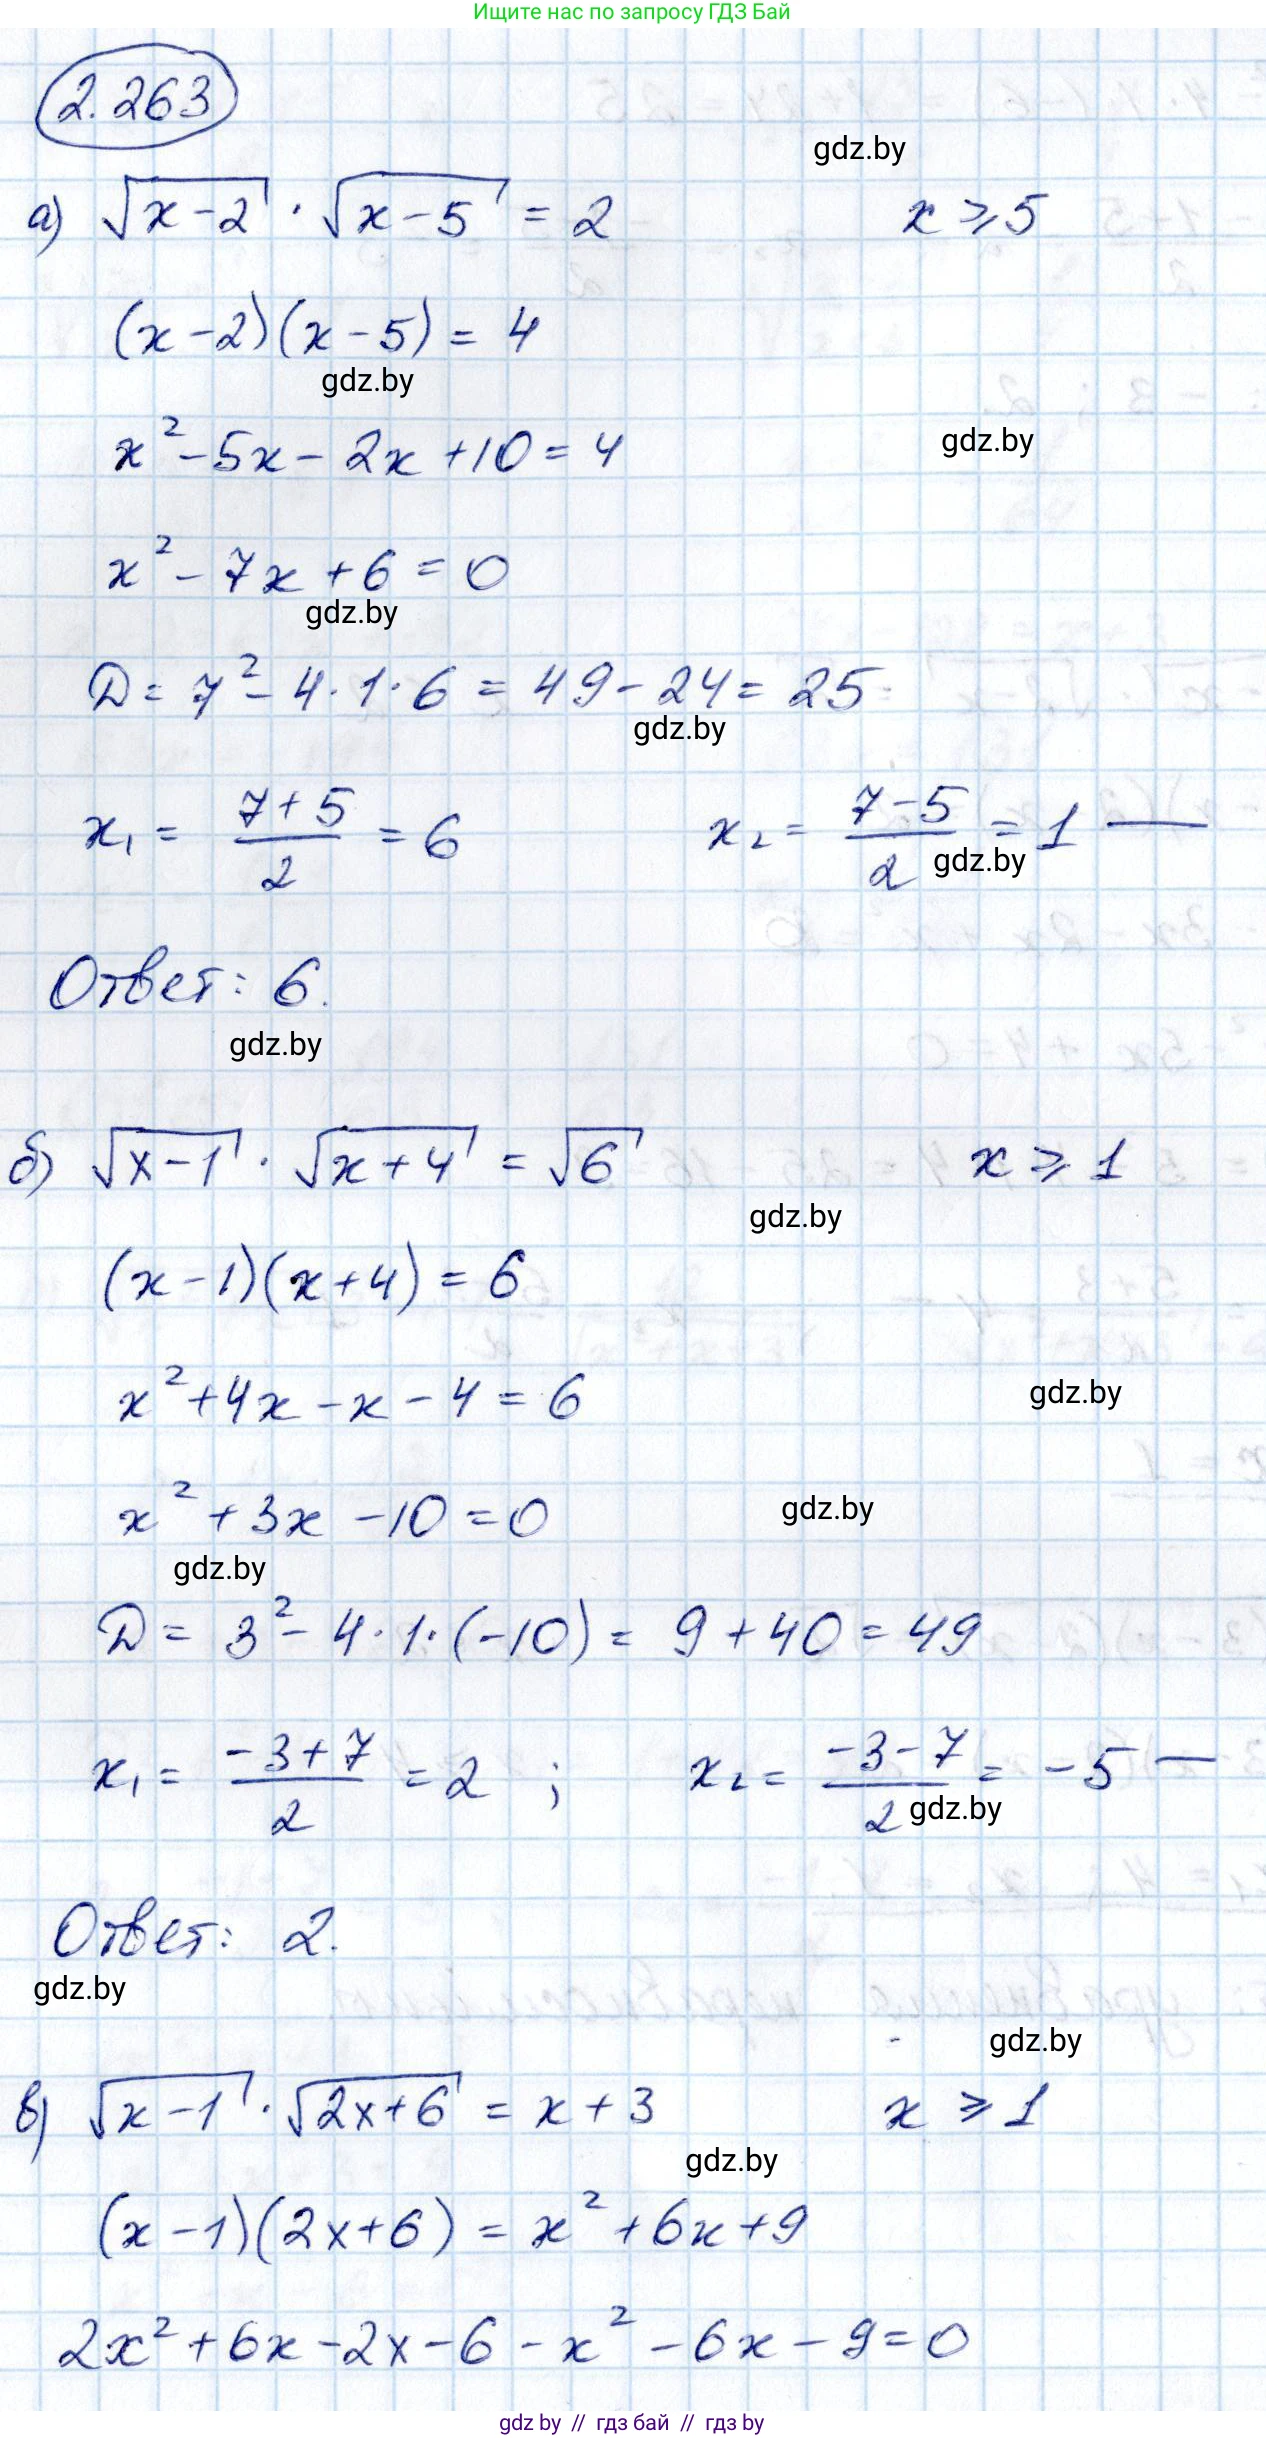 Ищите нас по запросу ГДЗ Бай
2.263
gdz.by
а) √(x-2) · √(x-5) = 2 x ⩾ 5
(x-2)(x-5) = 4
gdz.by
gdz.by
x² - 5x - 2x + 10 = 4
x² - 7x + 6 = 0
gdz.by
D = 7² - 4·1·6 = 49 - 24 = 25
gdz.by
x₁ = (7+5)/2 = 6 x₂ = (7-5)/2 = 1 —
gdz.by
Ответ: 6.
gdz.by
б) √(x-1) · √(x+4) = √6 x ⩾ 1
gdz.by
(x-1)(x+4) = 6
x² + 4x - x - 4 = 6
gdz.by
x² + 3x - 10 = 0
gdz.by
gdz.by
D = 3² - 4·1·(-10) = 9 + 40 = 49
x₁ = (-3+7)/2 = 2 ; x₂ = (-3-7)/2 = -5 —
gdz.by
Ответ: 2.
gdz.by
gdz.by
в) √(x-1) · √(2x+6) = x + 3 x ⩾ 1
gdz.by
(x-1)(2x+6) = x² + 6x + 9
2x² + 6x - 2x - 6 - x² - 6x - 9 = 0
gdz by // гдз бай // гдз by